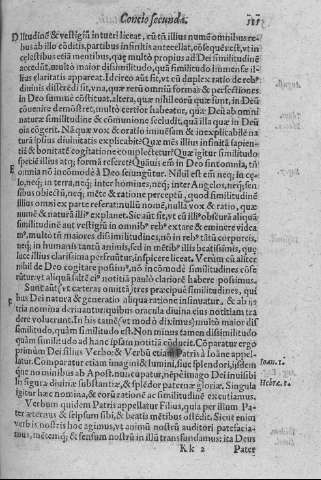 Concio secunda.
militudinē & vestigiū in tueri liceat, cū tū illius numē omnibus re-
bus ab illo cōditis, partibus infinitis antecellat, cōsequēs est, vt in
celestibus etiā mentibus, quę multò propiùs ad Dei similitudinē
accedūt, multò maior dissimilitudo, quā similitudo immensæ il-
lius claritatis appareat. Id circo aūt sit, vt cū duplex ratio de reb⁹
diuinis disserēdi sit, vna, quæ rerū omniū formas & perfectiones
in Deo summè cōstituat, altera, quæ nihil eorū quæ sunt, in Deū
cōuenire demōstret, multò certior habeatur, quæ Deū ab omni
naturæ similitudine & cōmunione secludit, quā illa quæ in Deū
oīa cōgerit. Nā quæ vox & oratio immēsam & inexplicabilē na
turā ipsius diuinitatis explicabit? Quæ mēs illius infinitā sapien-
tiā & bonitatē cogitatione complectetur? Quæ igitur similitudo
speciē illius atq; formā referet?
omnia nō in cōmodè à Deo seiungūtur. Nihil est em̄ neq; in cę-
lo, neq; in terra, neq; inter homines, neq; inter Angelos, neq; sen-
sibus obiectū, neq; mēte & ratione perceptū, quod similitudinē
illius omni ex parte referat: nullū nomē, nulla vox & ratio, quæ
numē & naturā illi⁹ explanet. Sic aūt fit, vt cū ill⁹ obscurā aliquā
similitudinē aut vestigiū in omnib⁹ reb⁹ extare & eminere videa
m⁹, multò tn̄ maiores dissimilitudines, nō in reb⁹ tātū corporeis,
neq; in humanis tantū animis, sed in mētib⁹ illis beatissimis, quę
luce illius clarissima perfruūtur, inspicere liceat. Verùm cū aliter
nihil de Deo cogitare possim⁹, nō incōmodè similitudines cōfe
rūtur, vt aliqua saltē ei⁹ notitiā paulò clariorē habere possimus.
Sunt aūt (vt cæteras omittā) tres præcipuæ similitudines, qui
bus Dei natura & generatio aliqua ratione insinuatur, & ab in
tria nomina deriuantur, quibus oracula diuina eius nostiam tra
dere voluerunt. In his tamē (vt modò diximus) multò maior dis
similitudo, quàm similitudo est. Non minus tamen dissimilitudo
quàm similitudo ad hanc ipsam notitiā cōducit. Cōparatur ergo
primùm Dei filius Verbo: & Verbū etiam Patris à Ioāne appel-
latur. Comparatur etiam imagini & lumini, siue splendori, isidem
que nominibus ab Apost. nuncupatur, nēpè imago Dei inuisibi
figura diuinæ substantiæ, & splēdor paternæ gloriæ. Singula
igitur hæc nomina, & eorū ratione ac similitudinē excutiamus.
Verbum quidem Patris appellatur Filius, quia per illum Pa-
ter æternus & seipsum sibi, & beatis mētibus ostēdit. Sicut enim
verbis nostris hoc agimus, vt animū nostrū auditori patefacia-
mus, mētemq; & sensum nostrū in illū transfundamus: ita Deus
Kk 2
Pater
Ioan. 1.
Hebræ. 1.